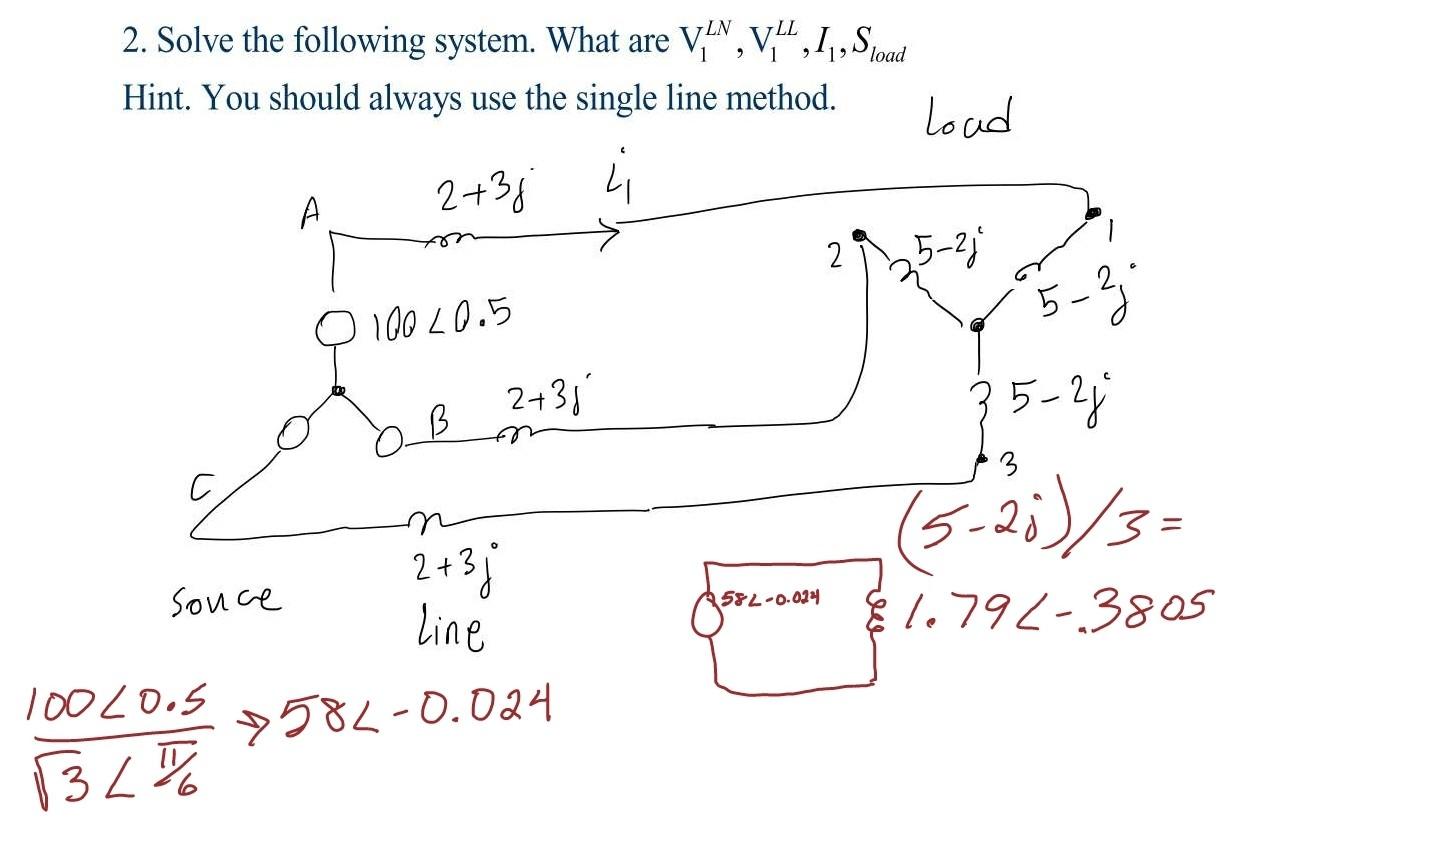 2. Solve the following system. What are V₁^LN, V₁^LL, I₁, S_load
Hint. You should always use the single line method.
Load
2+3j
i₁
A
1
2
5-2j
5-2j
100∠0.5
2+3j
B
5-2j
C
3
(5-2j)/3 =
2+3j
line
Source
58∠-0.024
1.79∠-.3805
100∠0.5
√3∠π/6
⇒58∠-0.024